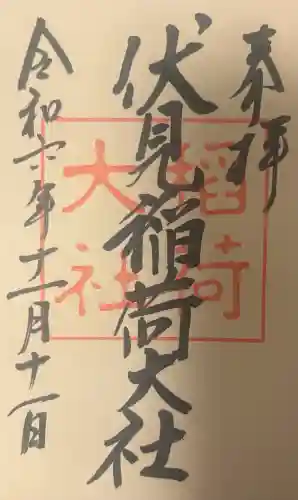 奉拝
伏見稲荷大社
稲荷
大社
令和六年十一月十一日